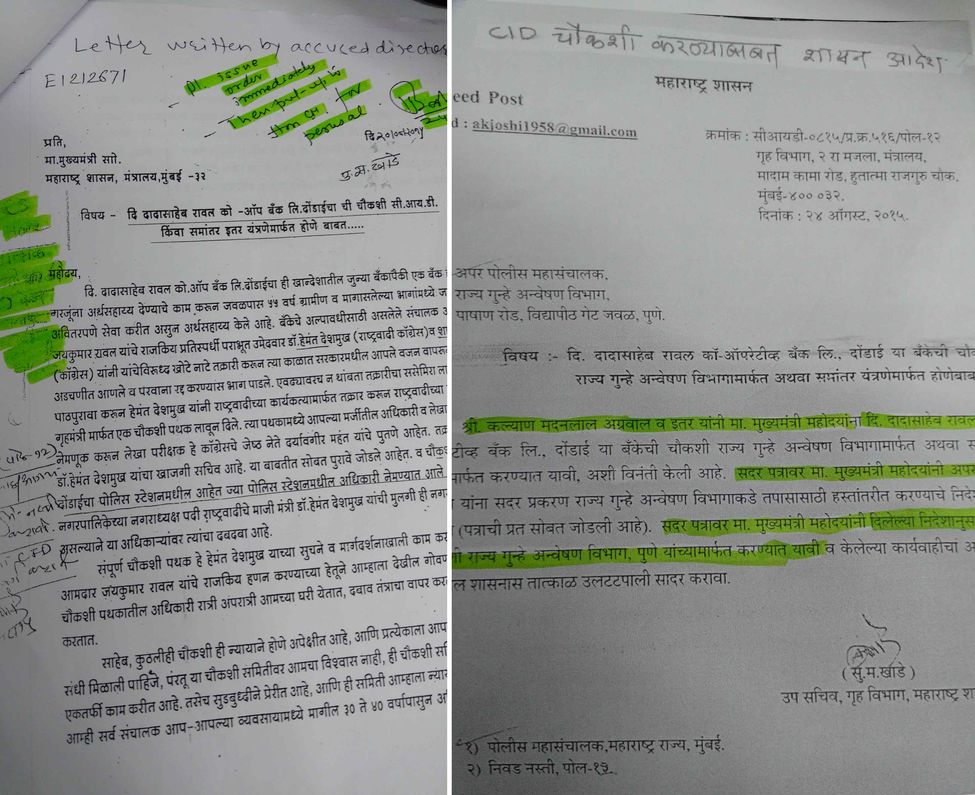 Letter written by accuced directors
E1212671
Pl. issue
order
immediately
Then put-up to
Hon CM for
perusal
प्रति,
मा.मुख्यमंत्री सो.
महाराष्ट्र शासन, मंत्रालय,मुंबई -३२
विषय - दि दादासाहेब रावल को -ऑप बँक लि.दोंडाईचा ची चौकशी सी.आय.डी.
किंवा समांतर इतर यंत्रणेमार्फत होणे बाबत.....
महोदय,
दि. दादासाहेब रावल को.ऑप बँक लि.दोंडाईचा ही खान्देशातील जुन्या बँकापैकी एक बँक
गरजूंना अर्थसहाय्य देण्याचे काम करून जवळपास ५५ वर्ष ग्रामीण व मागासलेल्या भागांमध्ये
अवितरपणे सेवा करीत असुन अर्थसहाय्य केले आहे. बँकेचे अल्पावधीसाठी असलेले संचालक
जयकुमार रावल यांचे राजकिय प्रतिस्पर्धी पराभूत उमेदवार डॉ.हेमंत देशमुख (राष्ट्रवादी काँग्रेस)व
(काँग्रेस) यांनी यांचेविरूध्द खोटे नाटे तक्रारी करून त्या काळात सरकारमधील आपले वजन वापरून
अडचणीत आणले व परवाना रद्द करण्यास भाग पाडले. एवढ्यावरच न थांबता तक्रारीचा ससेमिरा
पाठपुरावा करून हेमंत देशमुख यांनी राष्ट्रवादीच्या कार्यकर्त्यामार्फत तक्रार करून राष्ट्रवादीच्या
गृहमंत्री मार्फत एक चौकशी पथक लावून दिले. त्या पथकामध्ये आपल्या मर्जीतील अधिकारी व
नेमणूक करून लेखा परीक्षक हे काँग्रेसचे जेष्ठ नेते दर्यावगीर महंत यांचे पुतणे आहेत.
डॉ.हेमंत देशमुख यांचा खाजगी सचिव आहे. या बाबतीत सोबत पुरावे जोडले आहेत. व
दोंडाईचा पोलिस स्टेशनमधील आहेत ज्या पोलिस स्टेशनमधील अधिकारी नेमण्यात आले
नगरपालिकेच्या नगराध्यक्ष पदी राष्ट्रवादीचे माजी मंत्री डॉ.हेमंत देशमुख यांची मुलगी ही
असल्याने या अधिकाऱ्यांवर त्यांचा दबदबा आहे.
संपूर्ण चौकशी पथक हे हेमंत देशमुख याच्या सुचने व मार्गदर्शनाखाली काम
आमदार जयकुमार रावल यांचे राजकिय हणन करण्याच्या हेतूने आम्हाला देखील
चौकशी पथकातील अधिकारी रात्री अपरात्री आमच्या घरी येतात, दबाव तंत्राचा वापर
करतात.
साहेब, कुठलीही चौकशी ही न्यायाने होणे अपेक्षीत आहे, आणि प्रत्येकाला
संधी मिळाली पाहिजे, परंतू या चौकशी समितीवर आमचा विश्वास नाही, ही चौकशी
एकतर्फी काम करीत आहे. तसेच सुडबुध्दीने प्रेरीत आहे, आणि ही समिती आम्हाला
आम्ही सर्व संचालक आप-आपल्या व्यवसायामध्ये मागील ३० ते ४० वर्षापासुन
CID चौकशी करण्याबाबत शासन आदेश
महाराष्ट्र शासन
eed Post
d : akjoshi1958@gmail.com
क्रमांक : सीआयडी-०८१५/प्र.क्र.५१६/पोल-१२
गृह विभाग, २ रा मजला, मंत्रालय,
मादाम कामा रोड, हुतात्मा राजगुरु चौक.
मुंबई-४०० ०३२.
दिनांक : २४ ऑगस्ट, २०१५.
अपर पोलीस महासंचालक,
राज्य गुन्हे अन्वेषण विभाग,
पाषाण रोड, विद्यापीठ गेट जवळ, पुणे.
विषय :- दि. दादासाहेब रावल कॉ-ऑपरेटीव्ह बँक लि., दोंडाई या बँकेची
राज्य गुन्हे अन्वेषण विभागामार्फत अथवा समांतर यंत्रणेमार्फत
श्री. कल्याण मदनलाल अग्रवाल व इतर यांनी मा. मुख्यमंत्री महोदयांना दि. दादासाहेब रावल
टीव्ह बँक लि., दोंडाई या बँकेची चौकशी राज्य गुन्हे अन्वेषण विभागामार्फत अथवा
मार्फत करण्यात यावी, अशी विनंती केली आहे. सदर पत्रावर मा. मुख्यमंत्री महोदयांनी
यांना सदर प्रकरण राज्य गुन्हे अन्वेषण विभागाकडे तपासासाठी हस्तांतरीत करण्याचे
(पत्राची प्रत सोबत जोडली आहे). सदर पत्रावर मा. मुख्यमंत्री महोदयांनी दिलेल्या
राज्य गुन्हे अन्वेषण विभाग, पुणे यांच्यामार्फत करण्यात यावी व केलेल्या कार्यवाहीचा
ल शासनास तात्काळ उलटटपाली सादर करावा.
( सु.म.खाडे )
उप सचिव, गृह विभाग, महाराष्ट्र
१) पोलीस महासंचालक,महाराष्ट्र राज्य, मुंबई.
२) निवड नस्ती, पोल-१३.